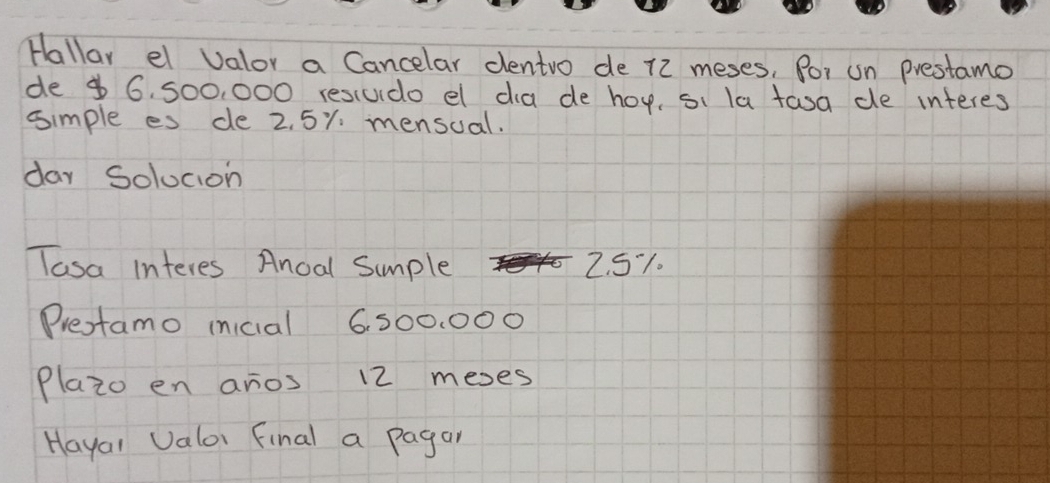 Hallar el valor a Cancelar dentro de 12 meses, Por un prestamo
de $ 6.500.000 resivido el dia de hoy, si la tasa de interes
simple es de 2.5% mensual.
dar Solución
Tasa interes Anoal Simple 2.5%
Prestamo inicial 6.500.000
Plazo en años 12 meses
Hayar Valor Final a pagar